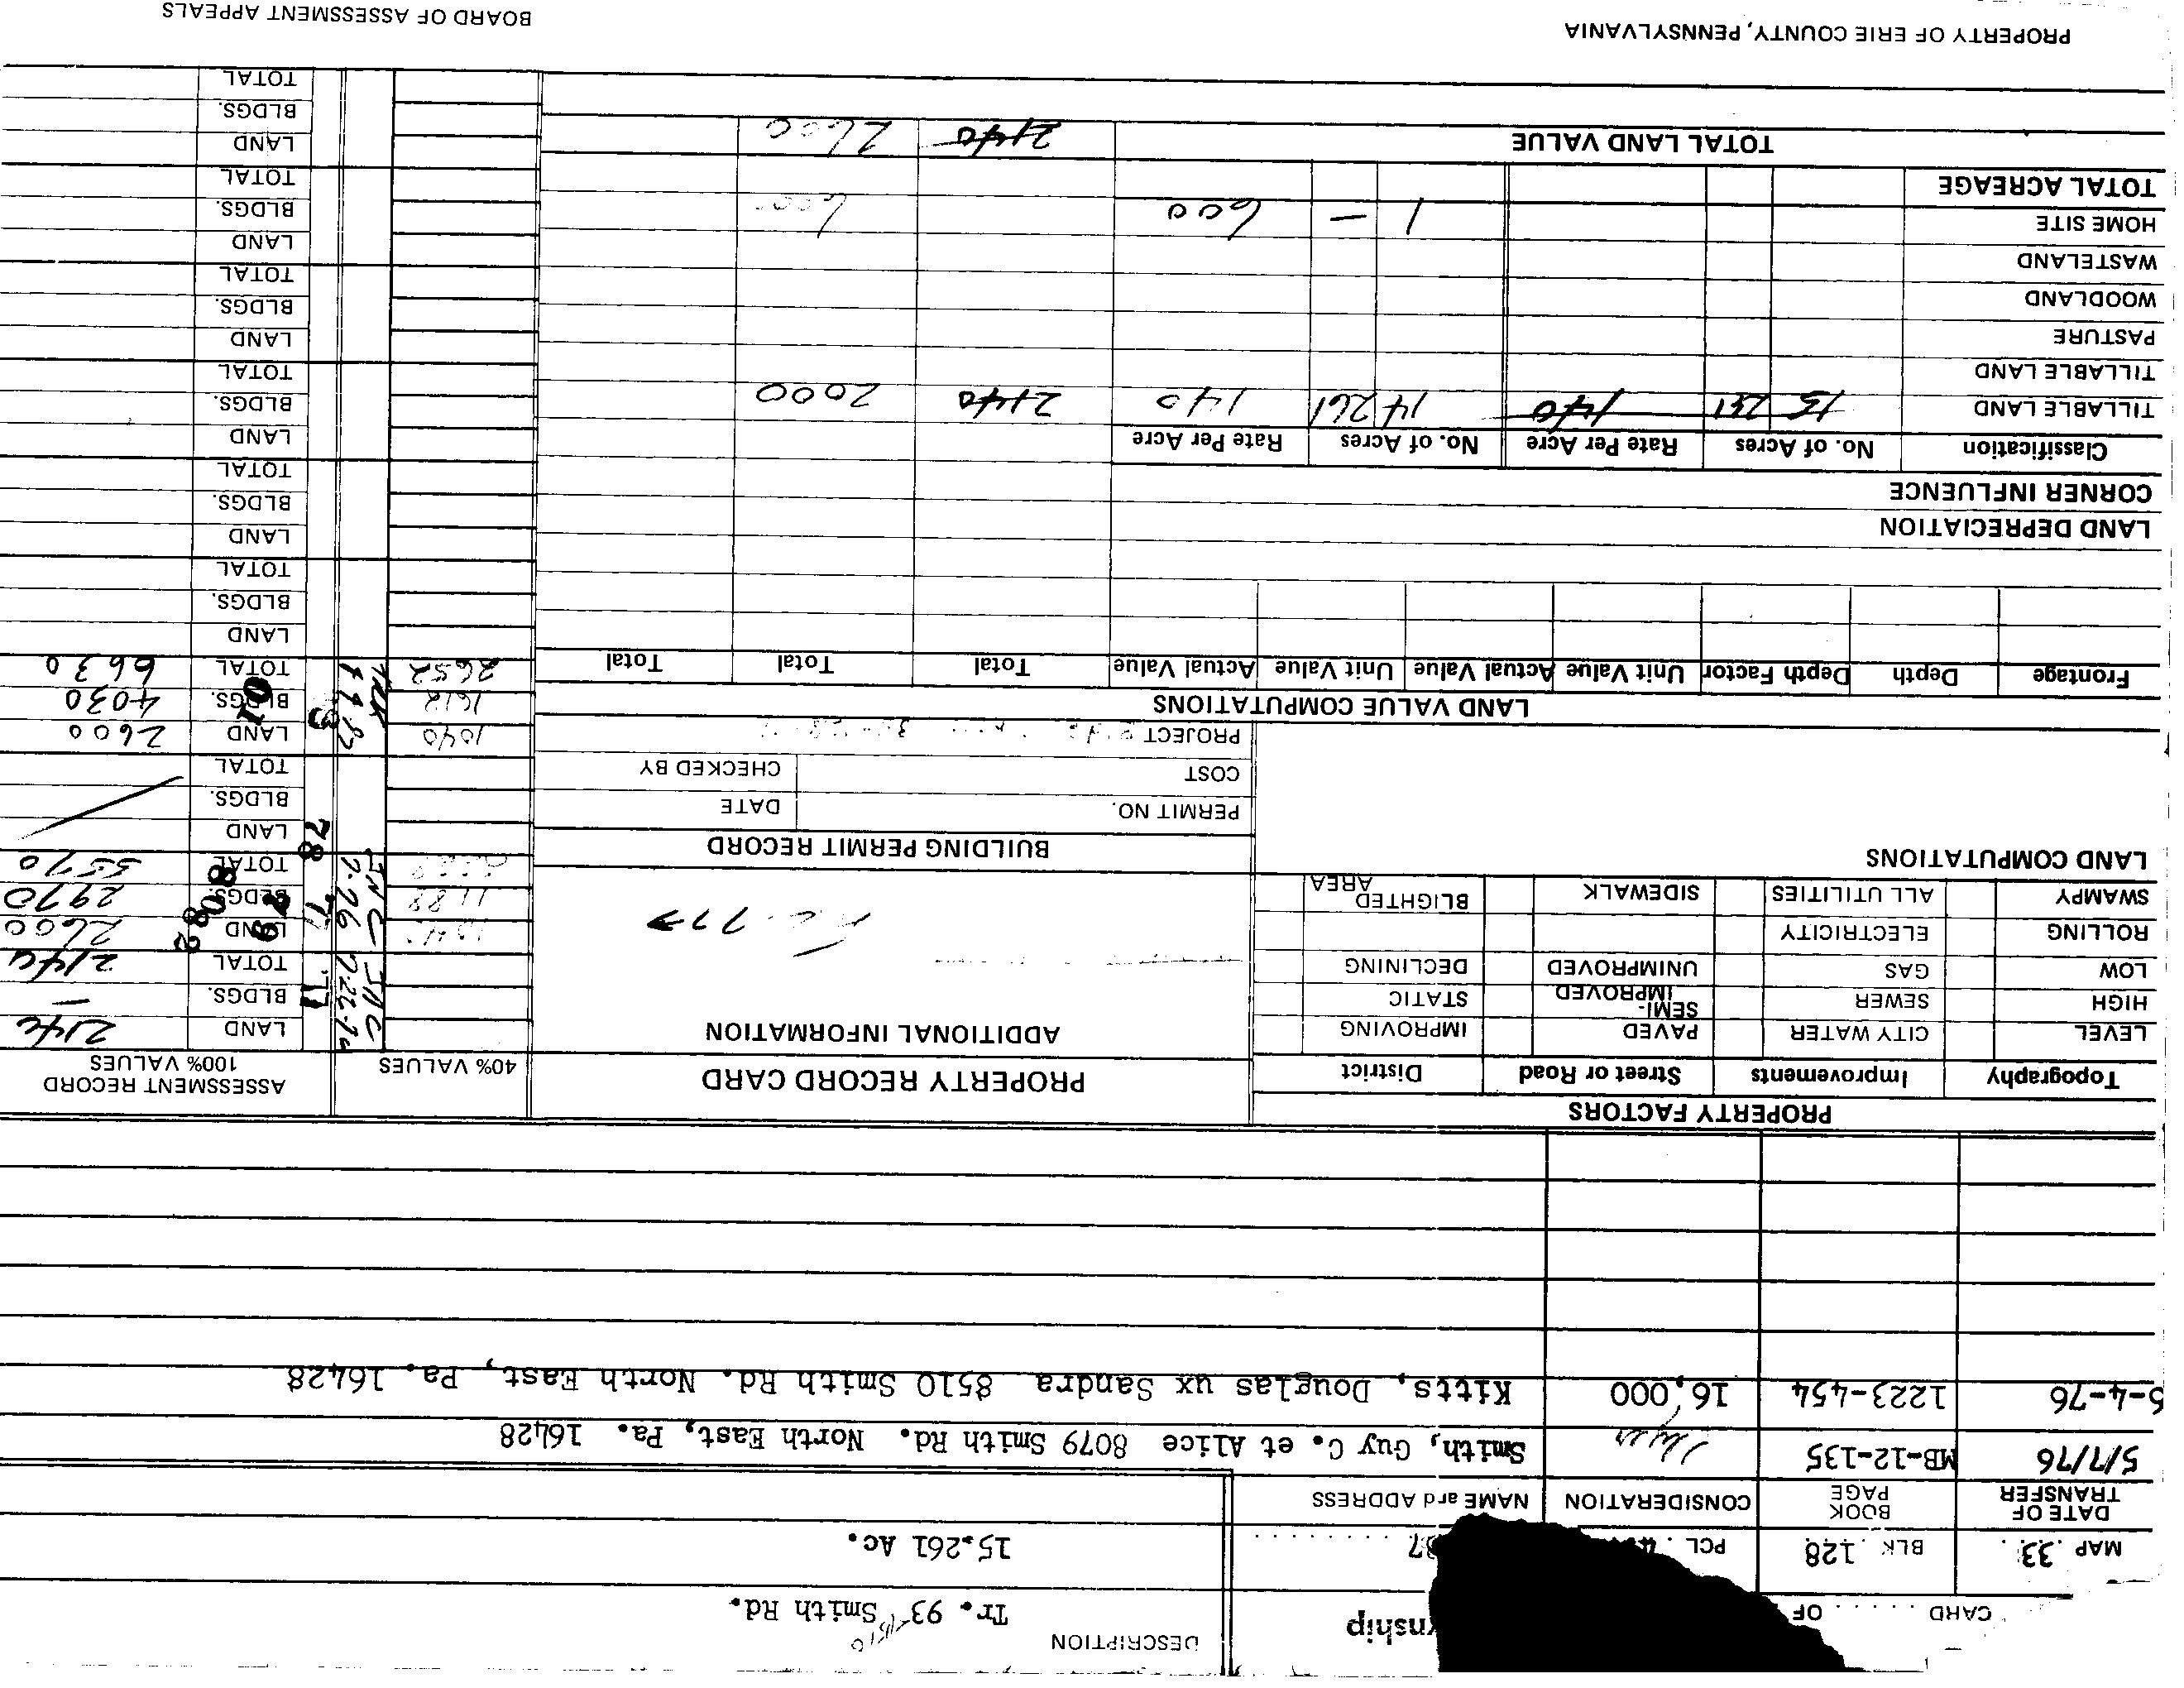 CARD . . . . . OF
nship
DESCRIPTION
Tr. 93 Smith Rd.
8510
MAP . 33 . BLK . 128 PCL . 37 . . . . . . . .
15.261 Ac.
DATE OF TRANSFER BOOK PAGE CONSIDERATION NAME and ADDRESS
5/7/76 MB-12-135 Smith, Guy C. et Alice 8079 Smith Rd. North East, Pa. 16428
5-4-76 1223-454 16,000 Kitts, Douglas ux Sandra 8510 Smith Rd. North East, Pa. 16428
PROPERTY FACTORS
Topography Improvements Street or Road District
PROPERTY RECORD CARD
40% VALUES
ASSESSMENT RECORD
100% VALUES
LEVEL CITY WATER PAVED IMPROVING
ADDITIONAL INFORMATION
LAND 2140
HIGH SEWER SEMI-IMPROVED STATIC
BLDGS. —
LOW GAS UNIMPROVED DECLINING
TOTAL 2140
ROLLING ELECTRICITY
LAND 2600
SWAMPY ALL UTILITIES SIDEWALK BLIGHTED AREA
1188 BLDGS. 2970
LAND COMPUTATIONS
TOTAL 5570
BUILDING PERMIT RECORD
LAND
PERMIT NO. DATE
BLDGS.
COST CHECKED BY
TOTAL
PROJECT
1040 LAND 2600
LAND VALUE COMPUTATIONS
1612 BLDGS. 4030
Frontage Depth Depth Factor Unit Value Actual Value Unit Value Actual Value Total Total Total
2652 TOTAL 6630
LAND
BLDGS.
TOTAL
LAND DEPRECIATION
LAND
CORNER INFLUENCE
BLDGS.
TOTAL
Classification No. of Acres Rate Per Acre No. of Acres Rate Per Acre
LAND
TILLABLE LAND 15 261 140 14 261 140 2140 2000
BLDGS.
TILLABLE LAND
TOTAL
PASTURE
LAND
WOODLAND
BLDGS.
WASTELAND
TOTAL
HOME SITE 1 — 600 600
LAND
BLDGS.
TOTAL ACREAGE
TOTAL
TOTAL LAND VALUE 2140 2600
LAND
BLDGS.
TOTAL
PROPERTY OF ERIE COUNTY, PENNSYLVANIA
BOARD OF ASSESSMENT APPEALS